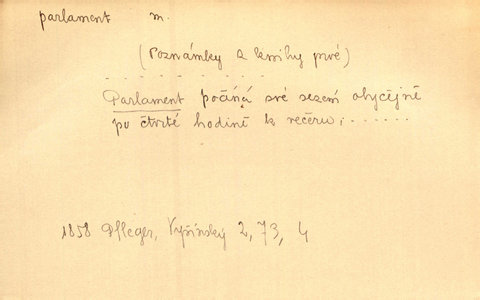 parlament m.
(Poznámky k knihy prvé)
. . . . . . . . . .
Parlament počíná své sezení obyčejně
po čtvrté hodině k večeru; . . . . . .
1858 Pfleger, Vyšínský 2, 73, 4